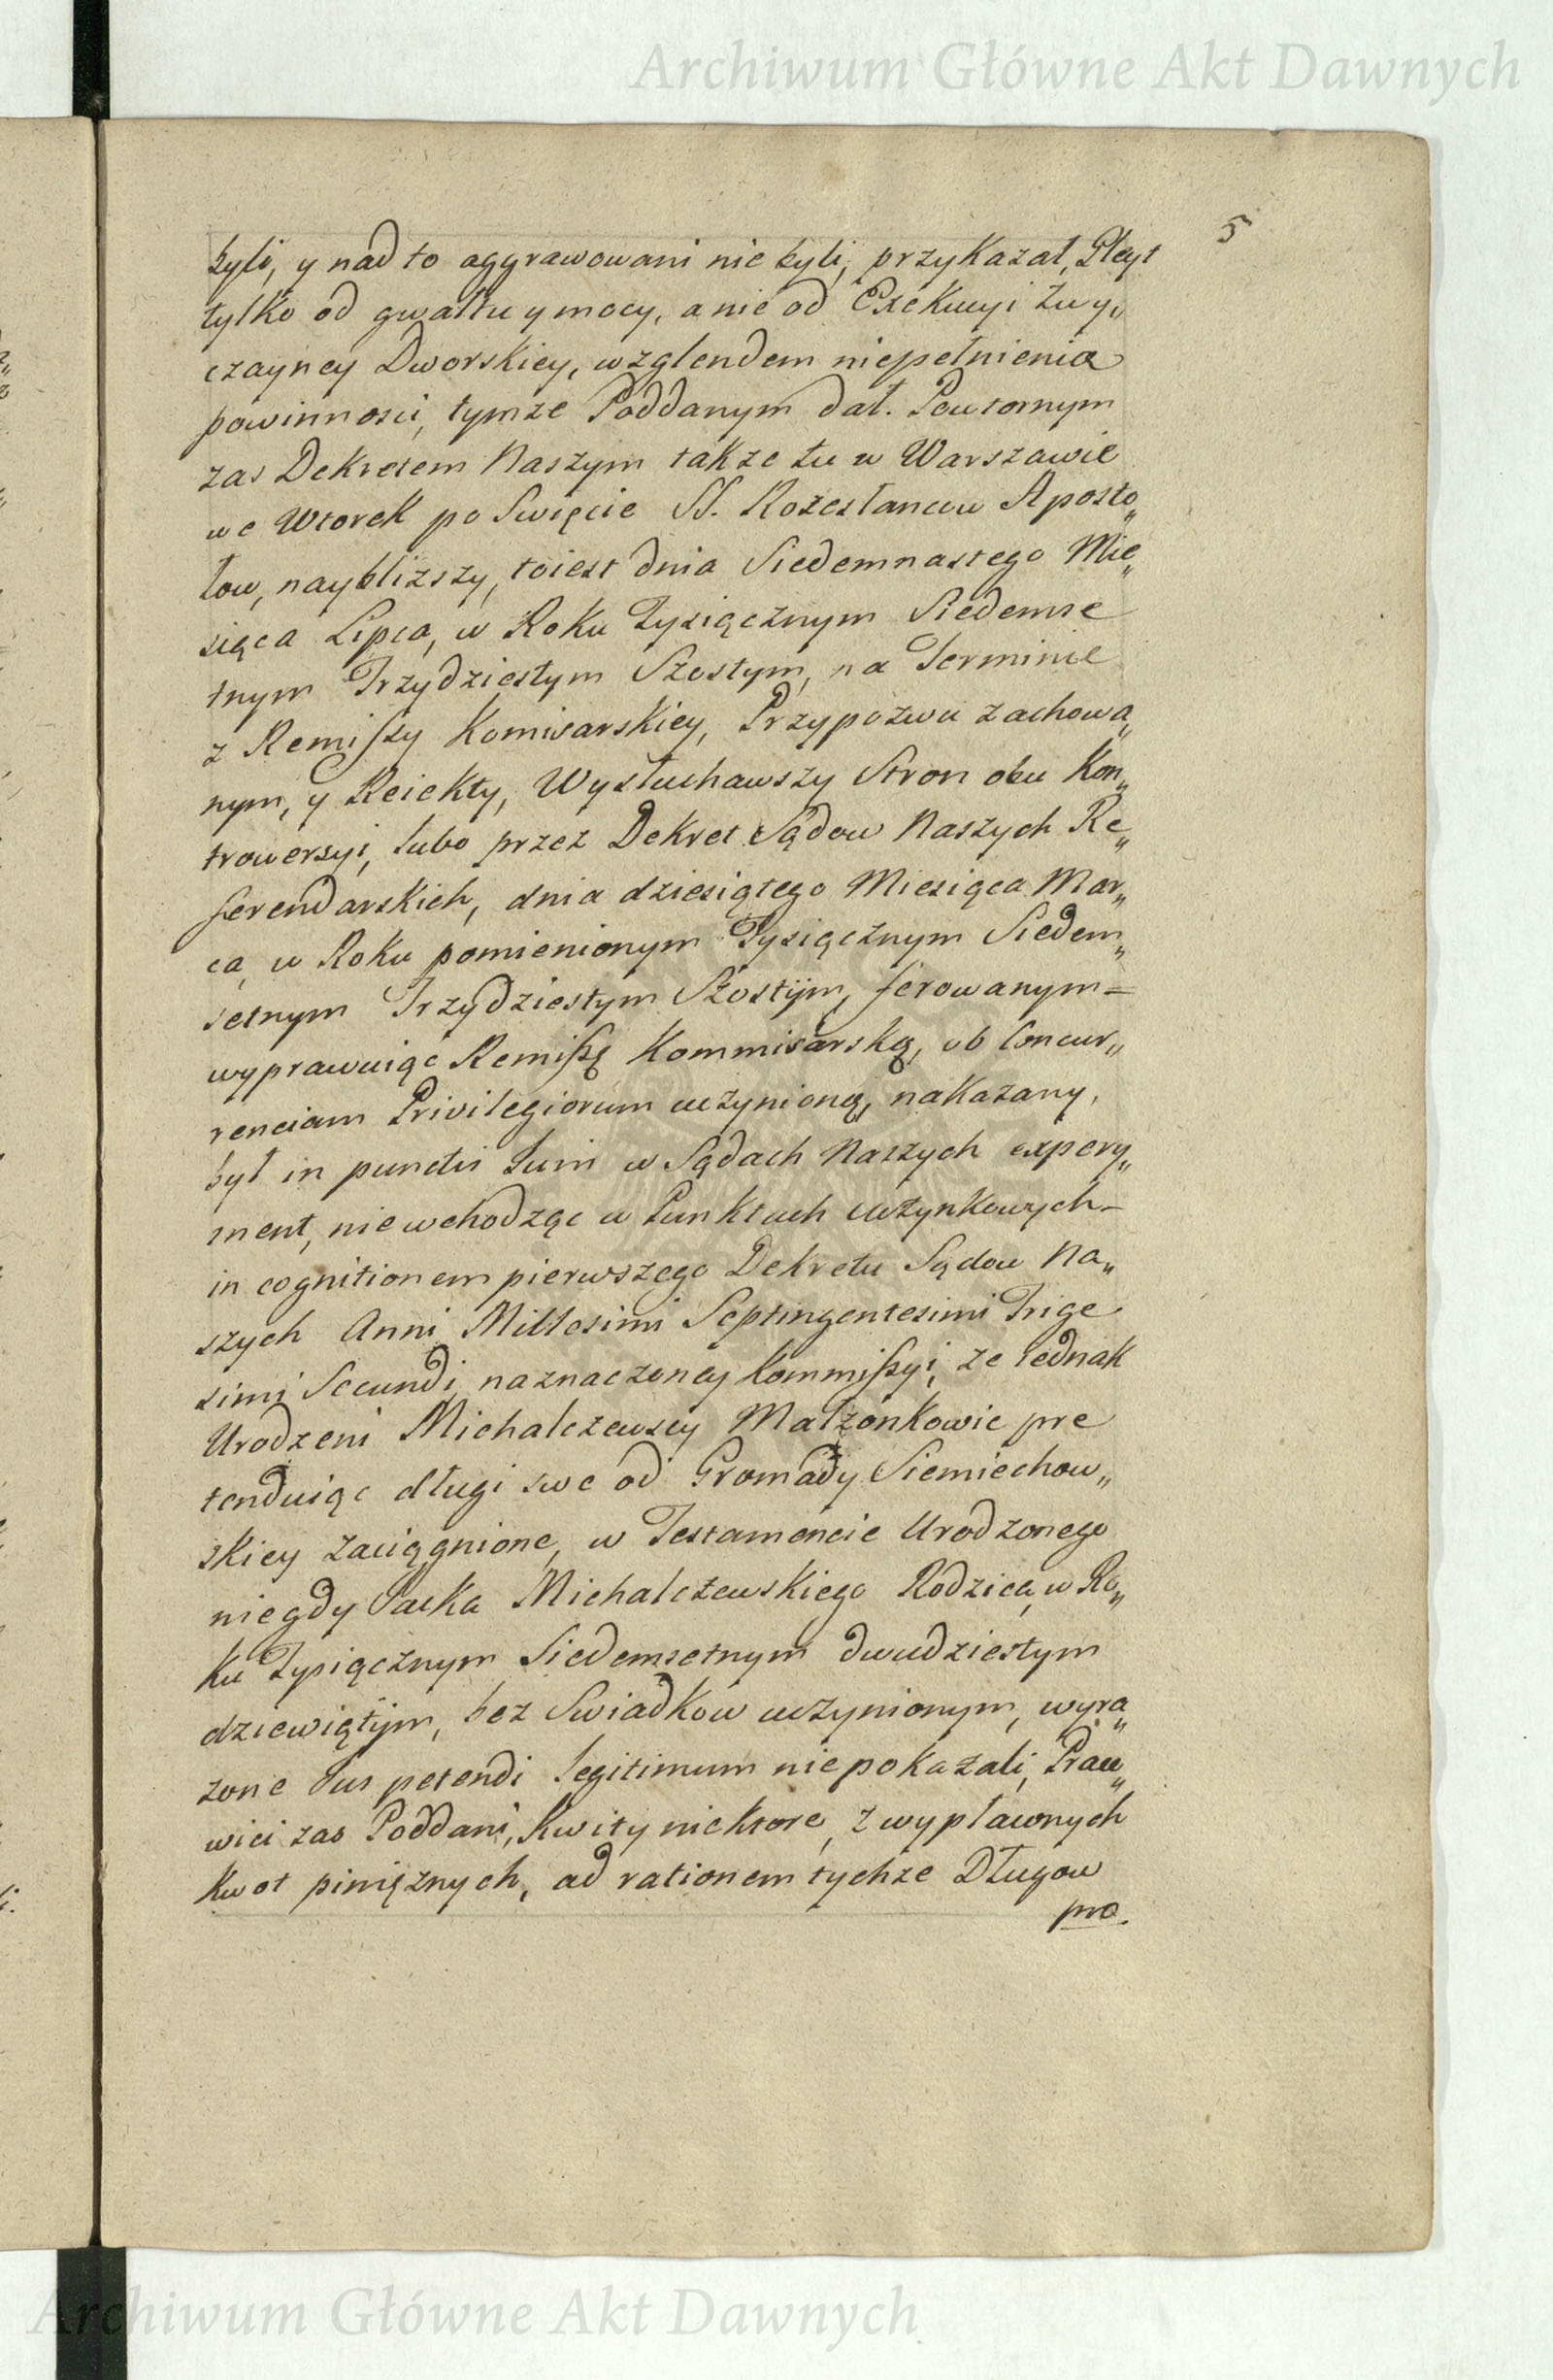 Archiwum Główne Akt Dawnych
5
byli, y nad to aggrawowani nie byli, przykazał, Gleyt
tylko od gwałtu y mocy, a nie od Exekucyi zwy„
czayney Dworskiey, wzglendem niepełnienia
powinnosci, tymze Poddanym dał. Powtornym
zas Dekretem Naszym takze tu w Warszawie
we Wtorek po Swięcie SS. Rozesłancow Aposto„
łow, naybliższy, toiest dnia Siedemnastego Mie„
siąca Lipca, w Roku Tysiącznym Siedemse
tnym Trzydziestym Szostym, na Terminie
z Remissy Komisarskiey, Przypozwu zachowa„
nym, y Reiekty, Wysłuchawszy Stron obu Kon„
trowersyi, lubo przez Dekret Sądow Naszych Re„
ferendarskich, dnia dziesiątego Miesiąca Mar„
ca, w Roku pomienionym Tysiącznym Siedem„
setnym Trzydziestym Szostÿm, ferowanym=
wyprawuiąc Remissę Kommisarską, ob Concur„
renciam Privilegiorum uczynioną, nakazany,
był in punctis Iuris w Sądach Naszych expery„
ment, nie wchodząc w Punktach uczynkowych-
in cognitionem pierwszego Dekretu Sądow Na„
szych Anni Millesimi Septingentesimi Trige
simi Secundi, naznaczoney Kommissyi, ze iednak
Urodzeni Michalczewscy Małzonkowie pre
tenduiąc długi swe od Gromady Siemiechow„
skiey zaciągnione, w Testamencie Urodzonego
niegdy Jacka Michalczewskiego Rodzica, w Ro„
ku Tysiącznym Siedemsetnym dwudziestym
dziewiątÿm, bez Swiadkow uczynionym, wyra„
zone Ius petendi legitimum nie pokazali, Praw„
wici zas Poddani, Kwity niektore, z wypławnych
kwot pinięznych, ad rationem tychze Długow
pro.
Archiwum Główne Akt Dawnych